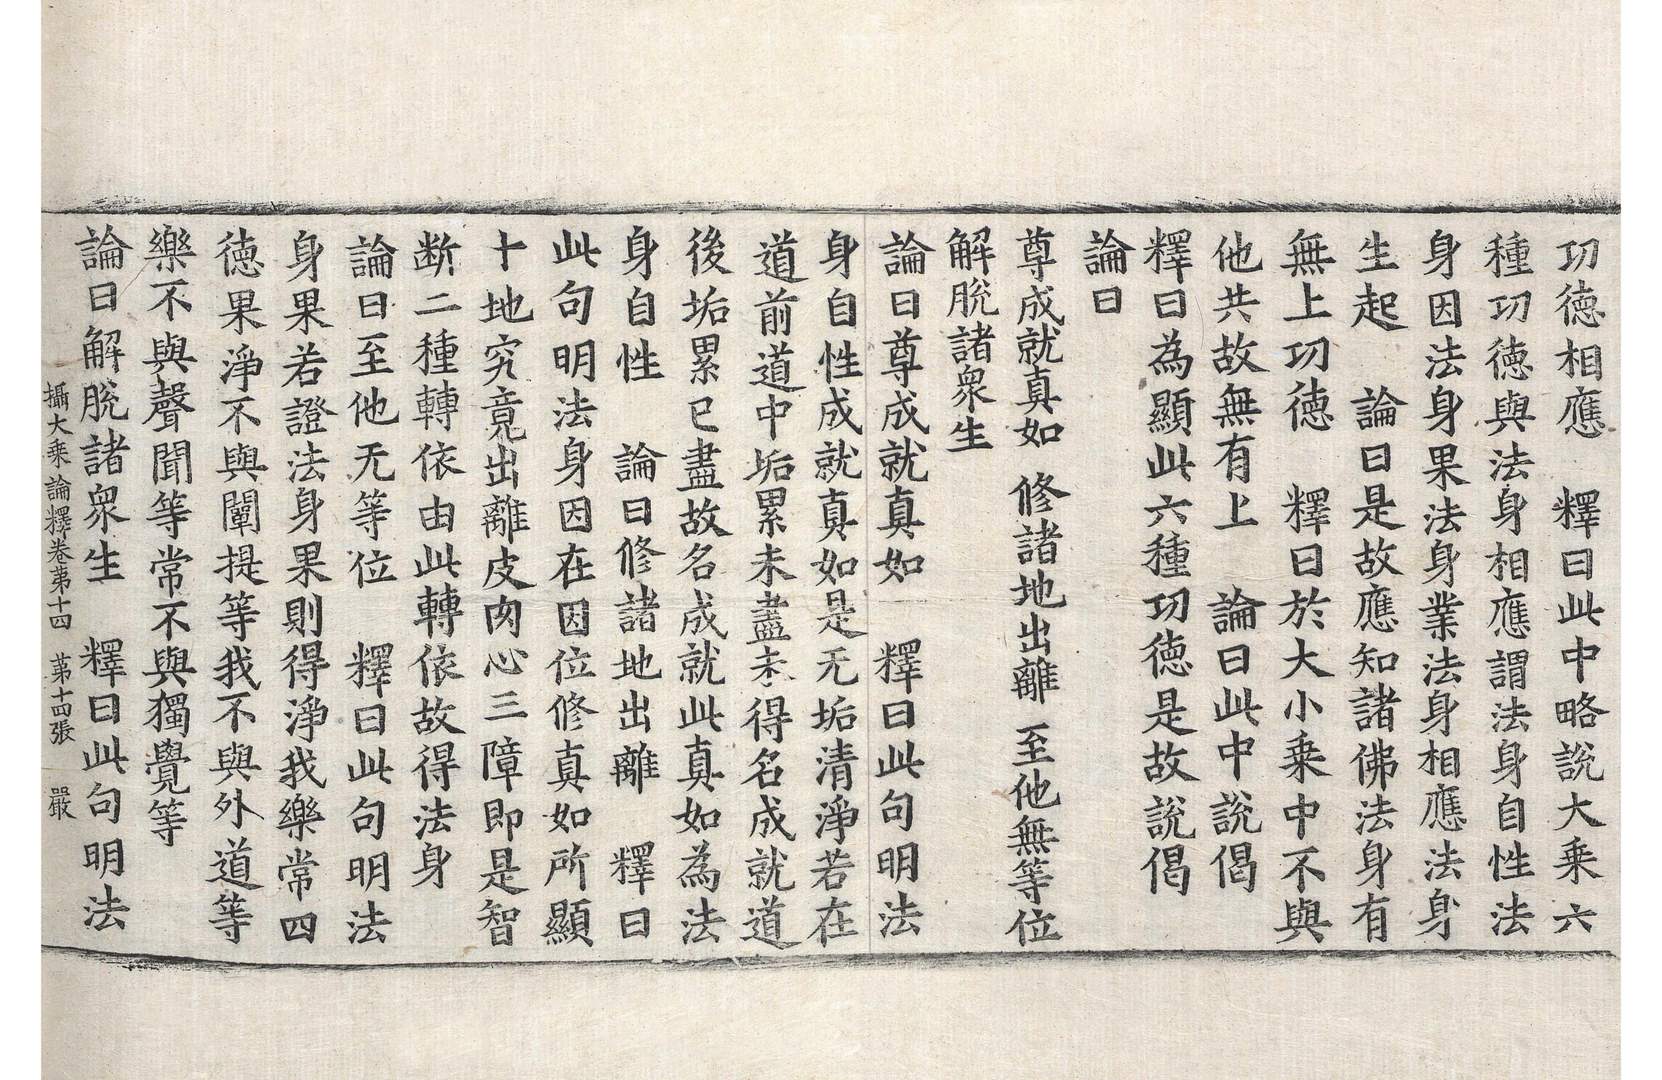 功徳相應　釋曰此中略說大乗六
種功徳與法身相應謂法身自性法
身因法身果法身業法身相應法身
生起　論曰是故應知諸佛法身有
無上功徳　釋曰於大小乗中不與
他共故無有上　論曰此中說偈
釋曰為顯此六種功徳是故說偈
論曰
尊成就真如　修諸地出離　至他無等位
解脫諸衆生
論曰尊成就真如　釋曰此句明法
身自性成就真如是无垢清淨若在
道前道中垢累未盡未得名成就道
後垢累已盡故名成就此真如為法
身自性　論曰修諸地出離　釋曰
此句明法身因在因位修真如所顯
十地究竟出離皮肉心三障即是智
断二種轉依由此轉依故得法身
論曰至他无等位　釋曰此句明法
身果若證法身果則得淨我樂常四
徳果淨不與闡提等我不與外道等
樂不與聲聞等常不與獨覺等
論曰解脫諸衆生　釋曰此句明法
攝大乗論釋卷苐十四　苐十四張　嚴